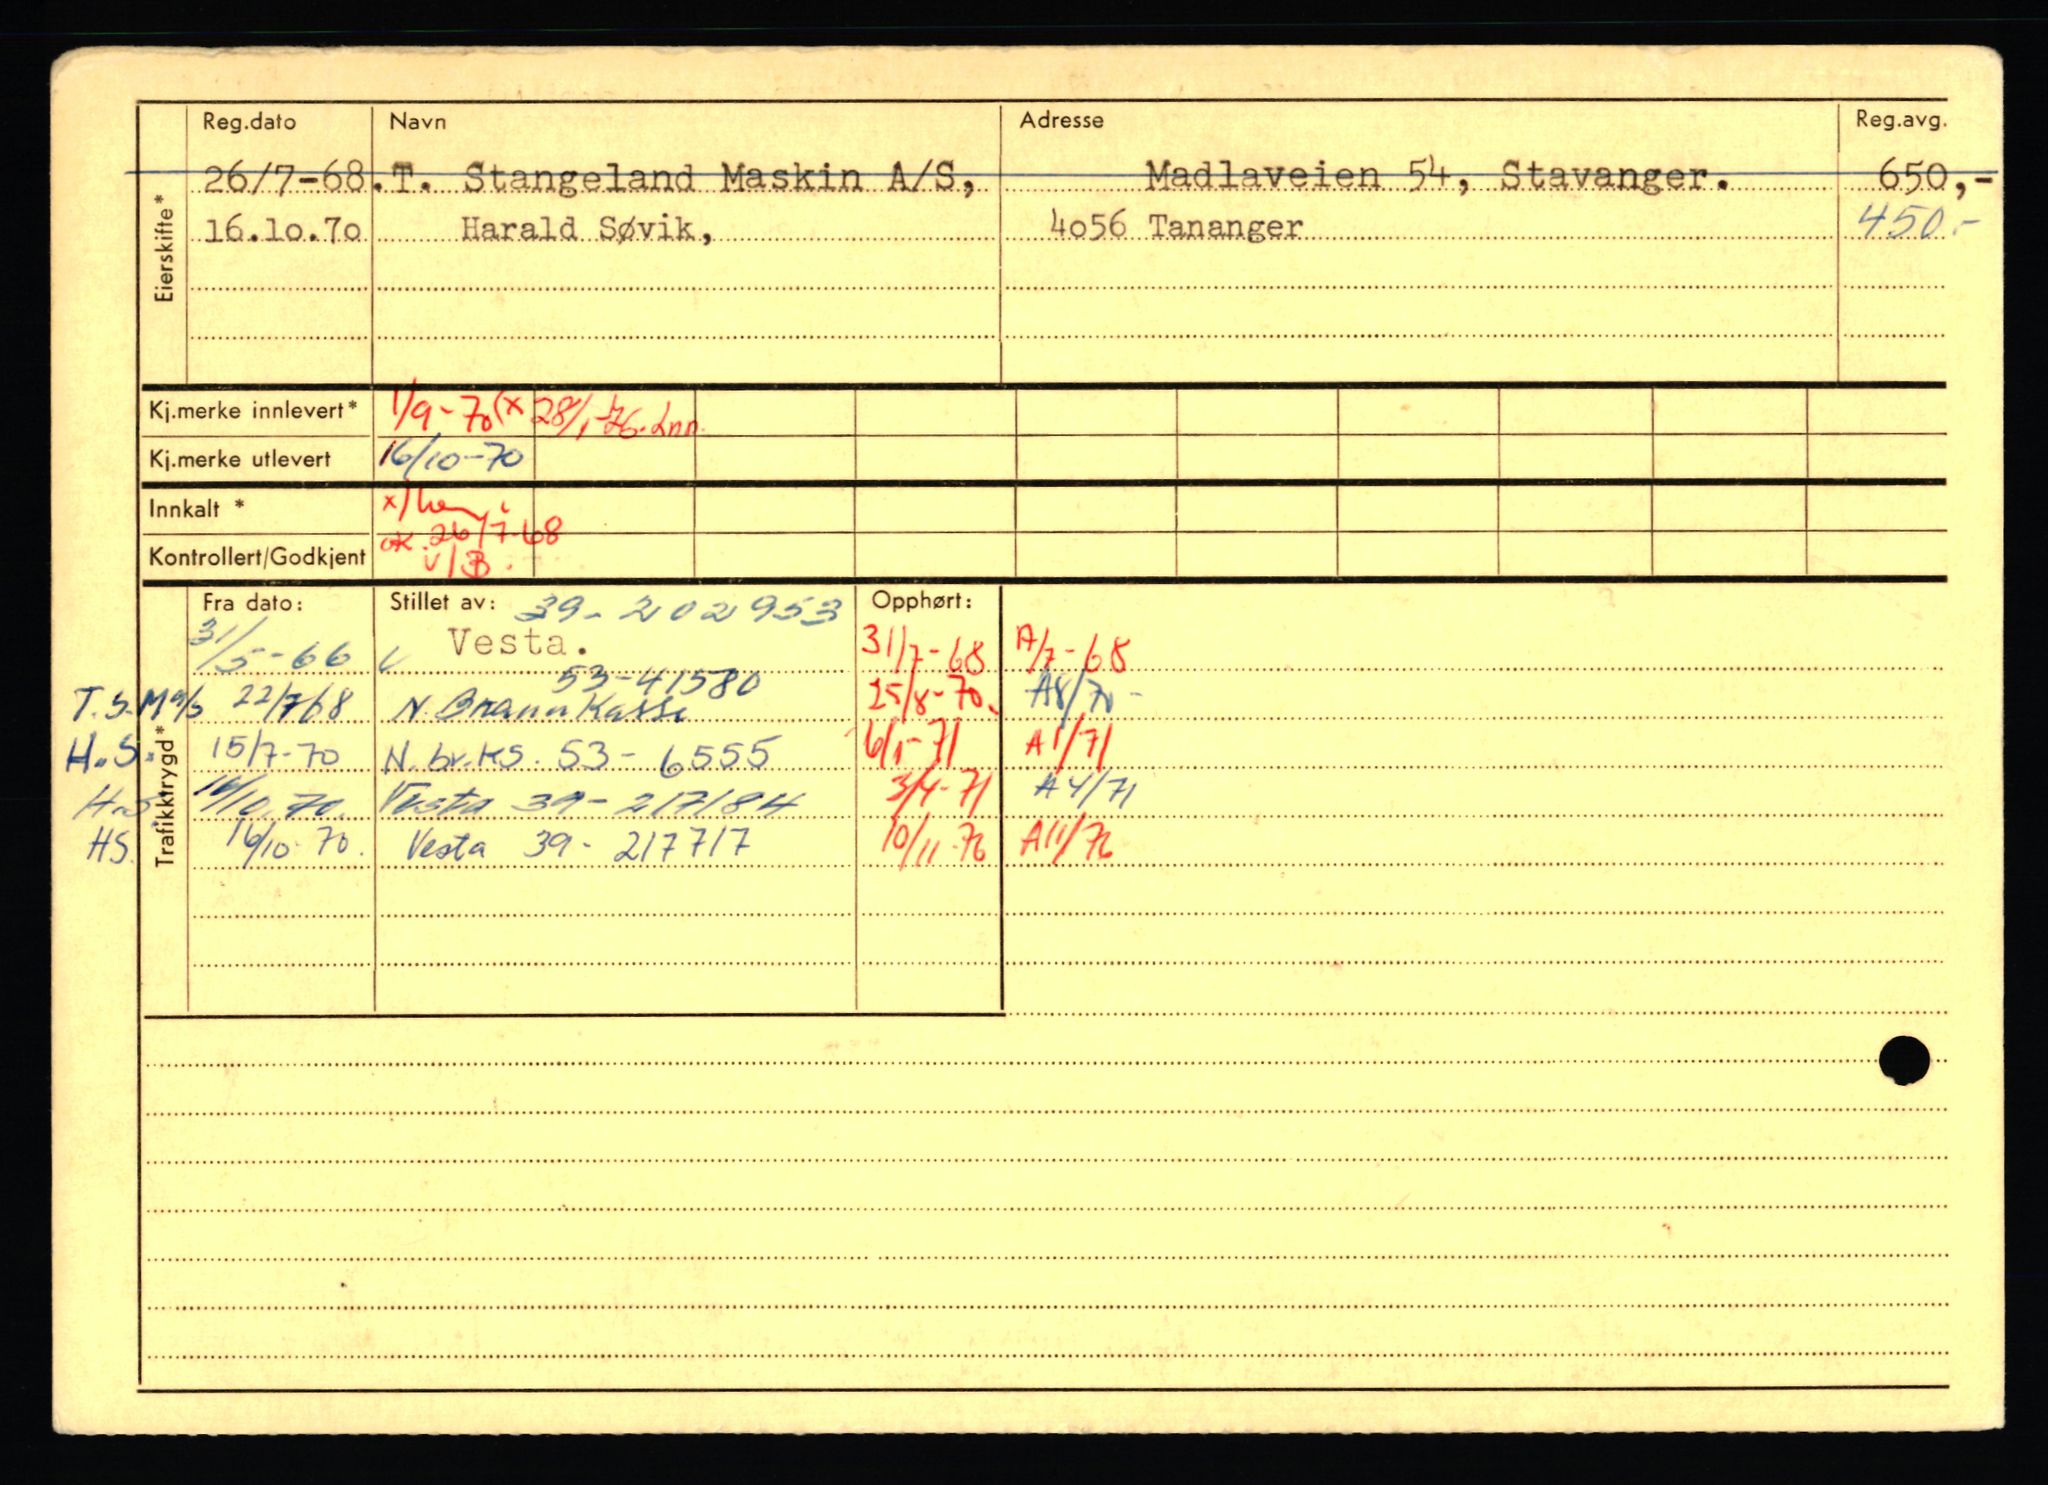 Reg.dato Navn Adresse Reg.avg.
Eierskifte*
26/7-68. T. Stangeland Maskin A/S, Madlaveien 54, Stavanger. 650,-
16.10.70 Harald Søvik, 4056 Tananger 450.-
Kj.merke innlevert* 1/9-70 (x 28/1-76. Inn.
Kj.merke utlevert 16/10-70
Innkalt *
ok. 26/7-68
Kontrollert/Godkjent
Trafikktrygd*
Fra dato: Stillet av: 39-202953 Opphørt:
31/5-66 Vesta. 31/7-68 A/7-68
53-41580
T.S.M a/s 22/768 N. Brann Kasse 25/8-70. A8/70-
H.S. 15/7-70 N. br.ks. 53-6555 6/1-71 A1/71
H.S. 14/10.70. Vesta 39-217184 3/4-71 A4/71
HS. 16/10-70. Vesta 39-217717 10/11-76 A11/76